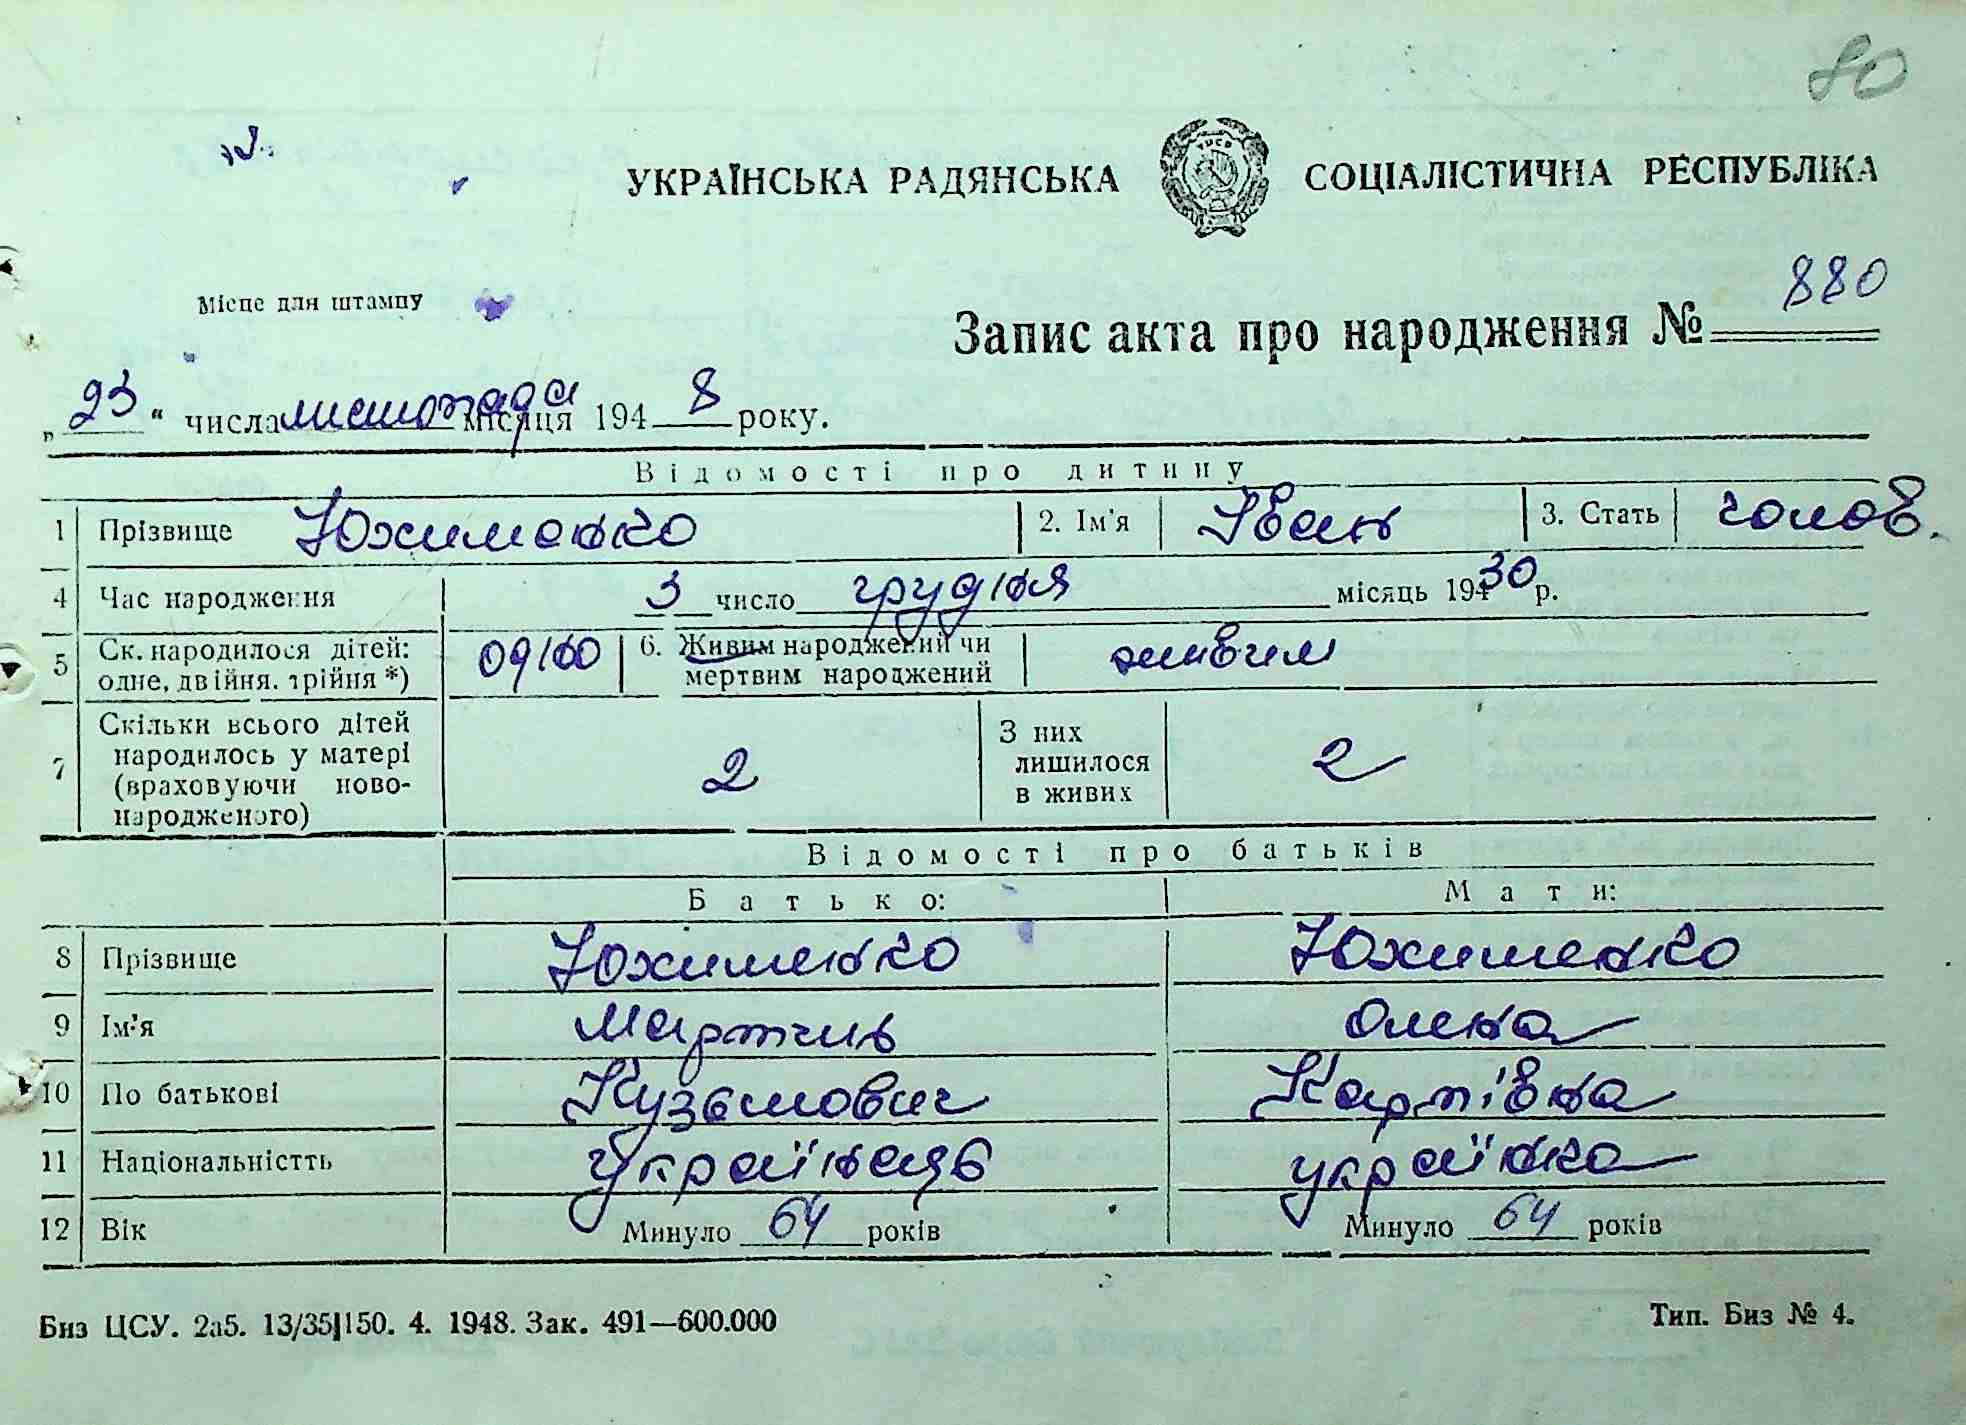 80
УКРАЇНСЬКА РАДЯНСЬКА СОЦІАЛІСТИЧНА РЕСПУБЛІКА
Місце для штампу
Запис акта про народження № 880
„23“ числа листопада місяця 1948 року.
Відомості про дитину
1 Прізвище Юхименко 2. Ім'я Іван 3. Стать чолов.
4 Час народження 3 число грудня місяць 1930 р.
5 Ск. народилося дітей: одне, двійня, трійня *) одно 6. Живим народжений чи мертвим народжений живим
7 Скільки всього дітей народилось у матері (враховуючи ново-народженого) 2 З них лишилося в живих 2
Відомості про батьків
Батько: Мати:
8 Прізвище Юхименко Юхименко
9 Ім'я Мартин Олена
10 По батькові Кузьмович Карпівна
11 Національністть українець українка
12 Вік Минуло 64 років Минуло 64 років
Биз ЦСУ. 2а5. 13/35|150. 4. 1948. Зак. 491—600.000 Тип. Биз № 4.